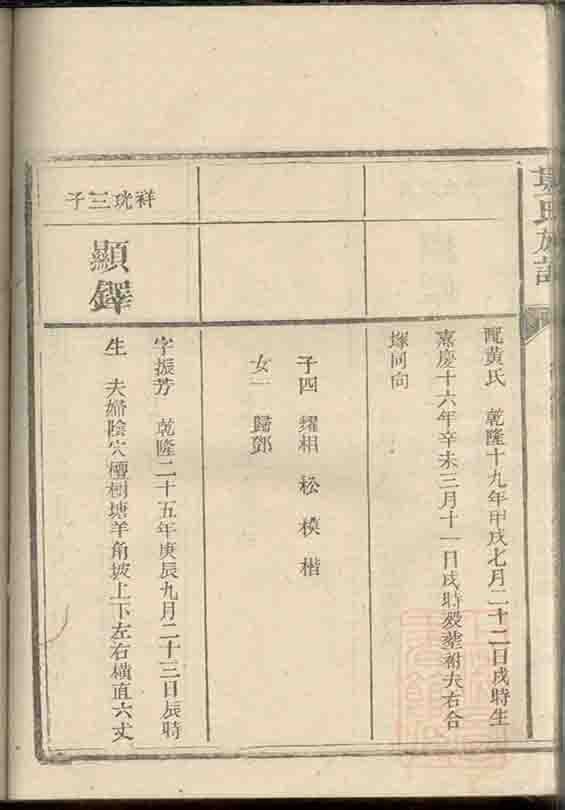 氏族譜
配黃氏 乾隆十九年甲戌七月二十二日戌時生
嘉慶十六年辛未三月十一日戌時歿塟祔夫右合
塚同向
子四 耀相 松 模 楷
女一 歸鄧
祥珖三子
顯鐸
字振芳 乾隆二十五年庚辰九月二十三日辰時
生 夫婦陰穴檀樹塘羊角坡上下左右橫直六丈